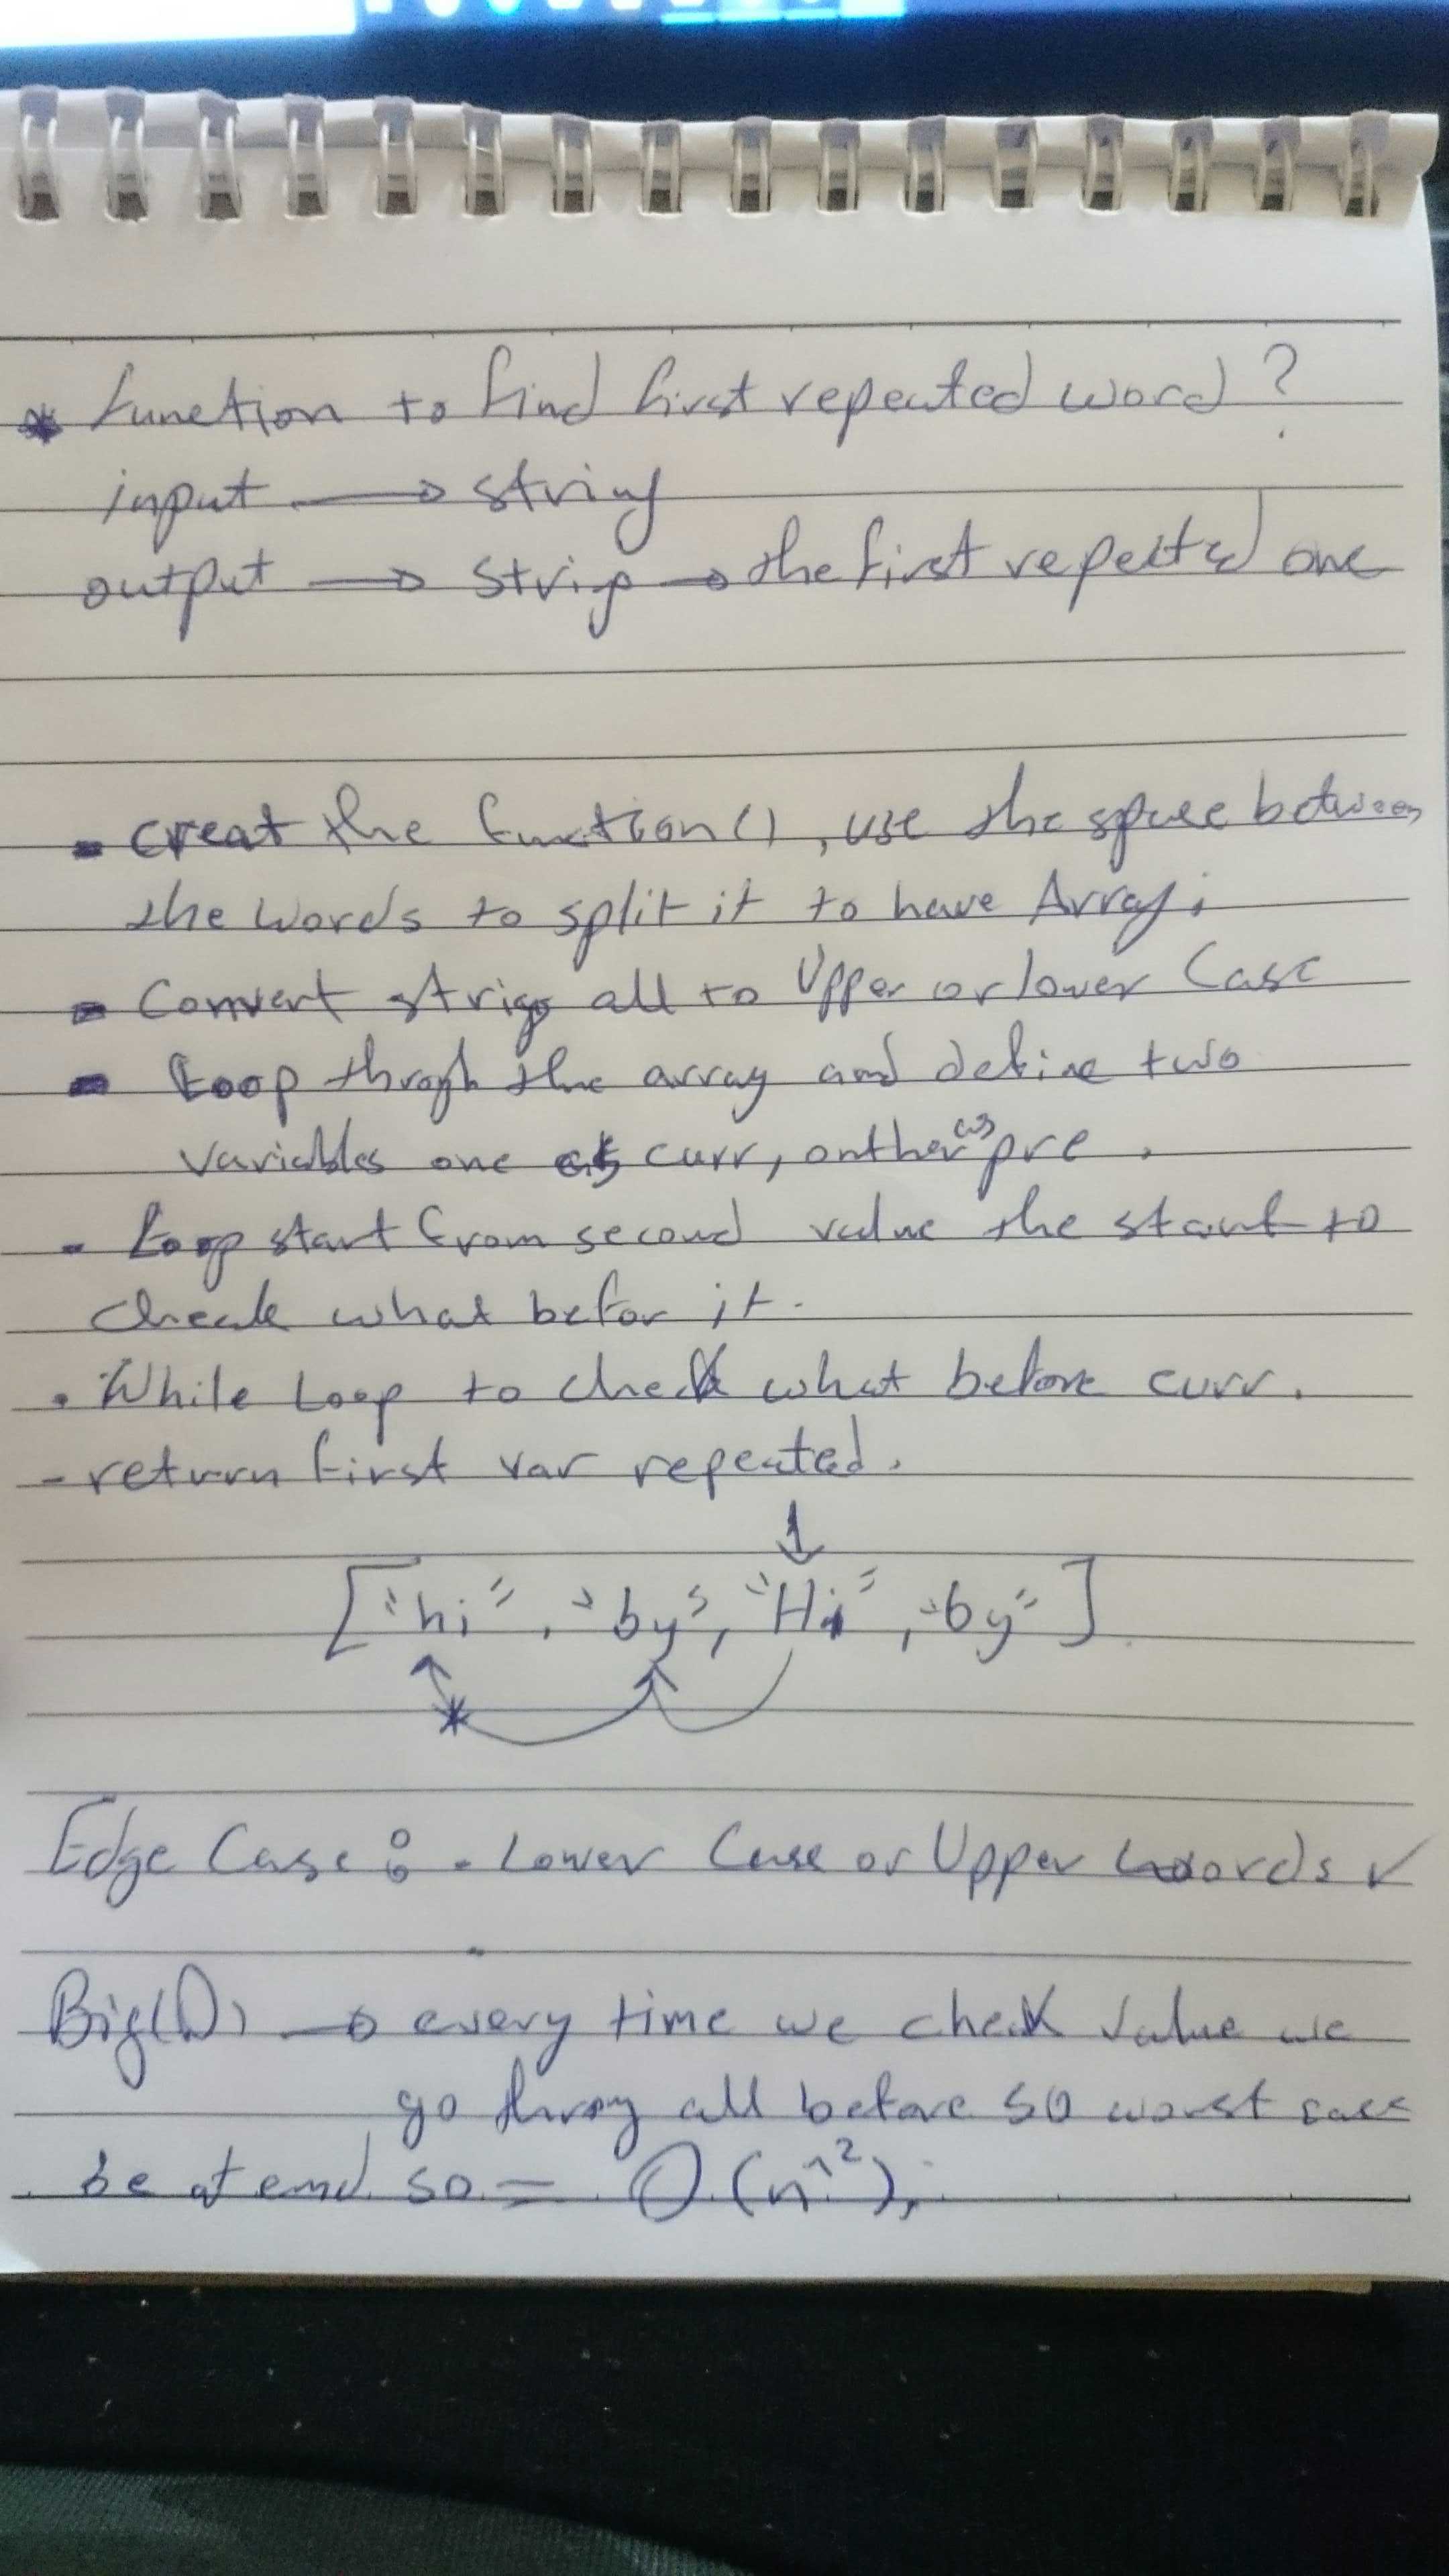 * function to find first repeated word?
input → string
output → string → the first repeated one
- creat the function(), use the space between
the words to split it to have Array;
- Convert strigs all to Upper or lower Case
- Loop throgh the array and define two
variables one as curr, onther as pre.
- Loop start from second value the start to
check what befor it.
. While Loop to check what before curr.
- return first var repeated.
↓
["hi", "by", "Hi", "by"]
*
Edge Case: - Lower Case or Upper words ✓
Big(O) → every time we check value we
go throg all before so worst case
be at end so = O(n^2);